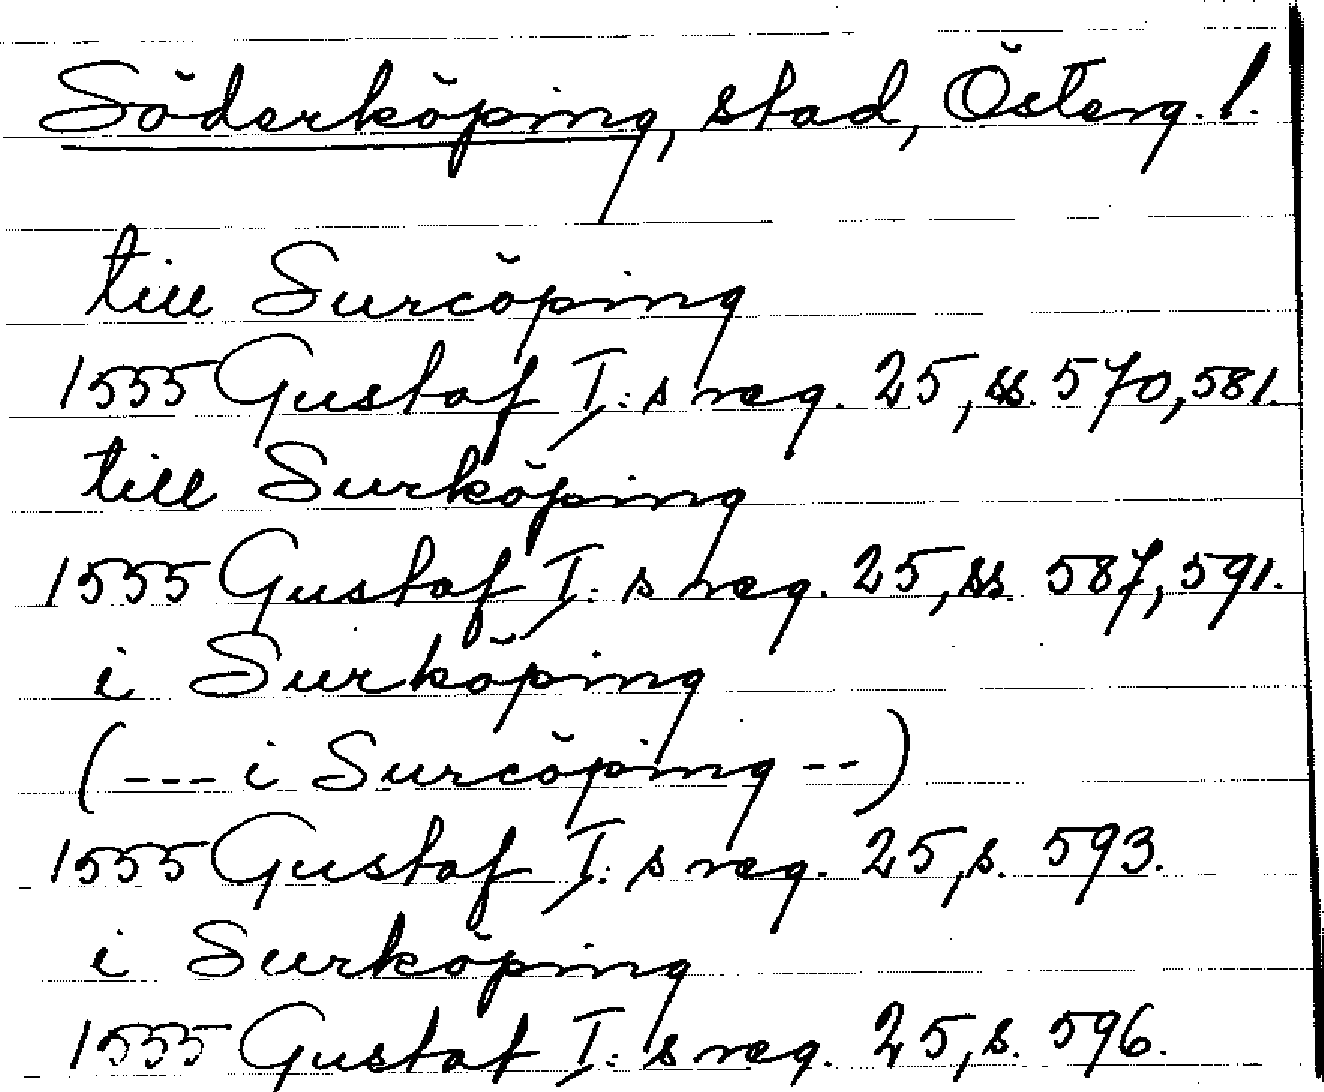 Söderköping, stad, Österg. l.
till Surcöping
1555 Gustaf I:s reg. 25, ss. 570, 581.
till Surköping
1555 Gustaf I:s reg. 25, ss. 587, 591.
i Surköping
(--- i Surcöping --)
1555 Gustaf I:s reg. 25, s. 593.
i Surköping
1555 Gustaf I:s reg. 25, s. 596.